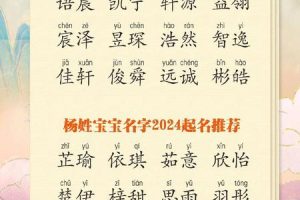 语宸 凯宁 轩源 益翎
chén zé yù chēn hào rán zhì yì
宸泽 昱琛 浩然 智逸
jiā xuān jùn shùn yuǎn chéng bīn hào
佳轩 俊舜 远诚 彬皓
杨姓宝宝名字2024起名推荐
zhǐ yú yī qí rú yì xīn yí
芷瑜 依琪 茹意 欣怡
chǔ yī zǐ tián sī yǔ yǔ tóng
楚伊 梓甜 思雨 羽彤